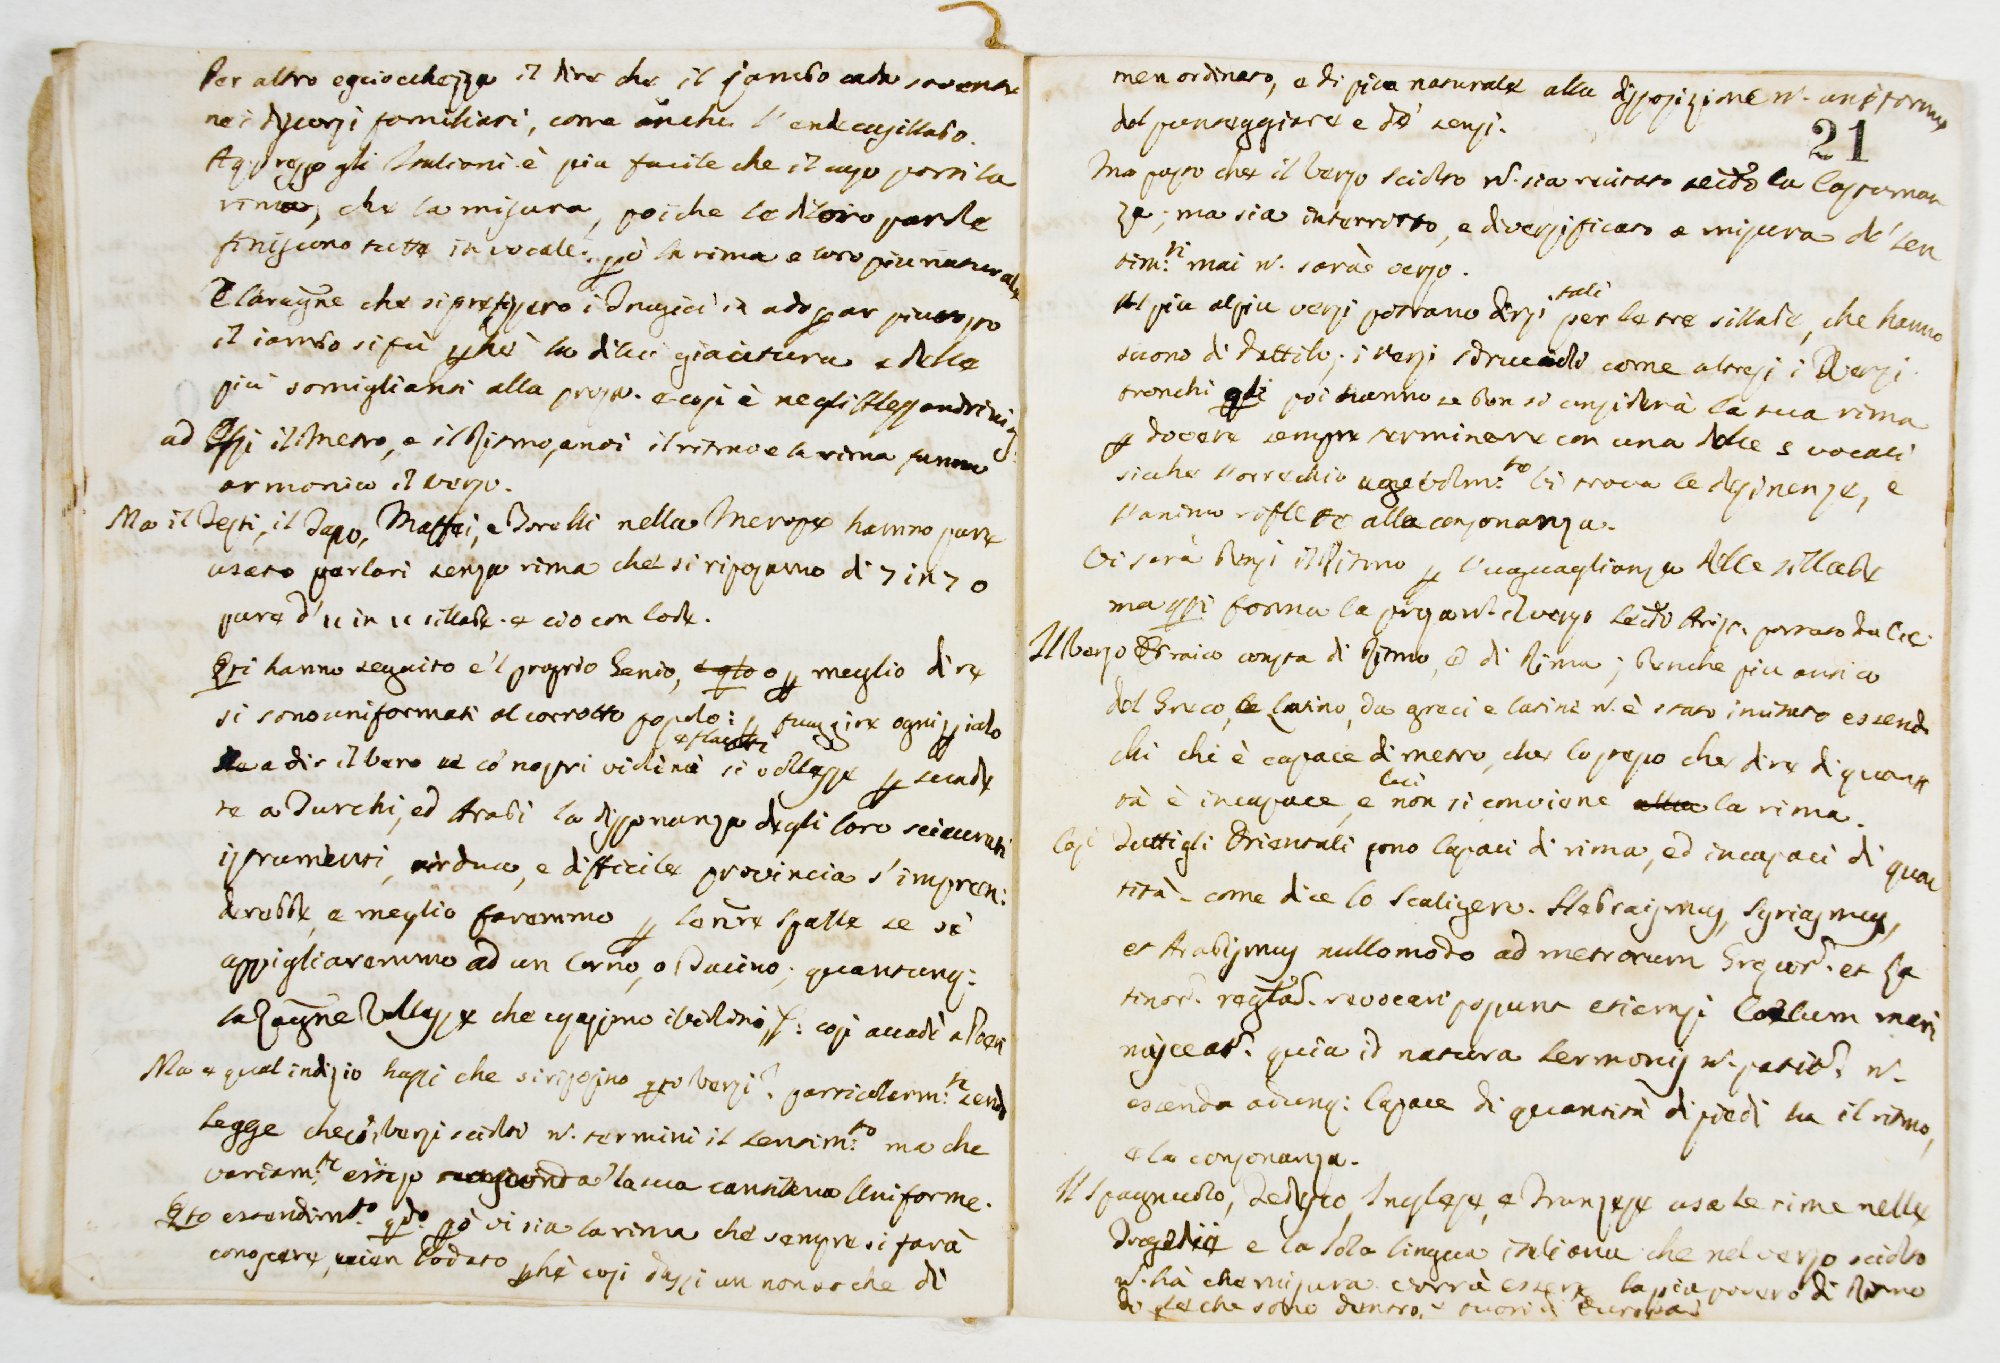 Per altro è sciocchezza il dire che il jambo cada sovente
ne i discorsi familiari, come anche l'endecasillabo.
Appresso gli Italiani è piu facile che il caso porti la
rima, che la misura, poiche le di loro parole
finiscono tutte in vocale. però la rima è loro piu naturale
E la ragne che si prefissero i Tragici in adoprar piutosto
il iambo si fù perchè la di lui giacitura è delle
piu somiglianti alla prosa. e cosi è negli Alessandrini
ad Essi il Metro, e il Ritmo, a noi il ritmo e la rima fanno
armonico il verso.
Ma il Testi, il Tasso, Maffei, e Torelli nella Merope hanno pure
usato parlari senza rima che si riposano di 7 in 7 o
pure d'11 in 11 sillabe. e ciò con lode.
Qsti hanno seguito e'l proprio Genio, o per meglio dire
si sono uniformati al corrotto popolo: per fuggire ogni
a dir il vero se co' nostri violini si volesse per
te a Turchi, ed Arabi la dissonanza degli loro sciaurati
istrumenti, ardua, e difficile provincia s'impren:
derebbe, e meglio faremmo per le nre spalle se si
appigliaremmo ad un Corno, o Tacino; quantunq:
la Ragne Volesse che usassimo i violini,
Ma a qual indizio hassi che si riposino qsti versi? particolarm:te
legge che i versi sciolti n. termini il sentim:to ma che
variam:te esso la sua cantilena Uniforme.
Qsto essendim:to qdo pò vi sia la rima che sempre si farà
conoscere, vien lodato perchè cosi dassi un non so che di
men ordinato, e di piu naturale alla disposizione n. uniforme
del punteggiare e de' sensi.
21
Ma posto che il verso sciolto n. sia recitato secdo la Costuman
za; ma sia interrotto, e diversificato a misura de' sen
tim:ti mai n. sarà verso.
Al piu al piu versi potranno dirsi tali per le tre sillabe, che hanno
suono di dattilo; i versi sdruccioli come altresi i Versi
tronchi qsti poi hanno se ben si considera la sua rima
per dovere sempre terminare con una delle 5 vocali
sicche l'orrechio agevolm:te vi trova le desinenze, e
l'animo riflette alla consonanza.
Vi sarà bensi il Ritmo per l'uguaglianza delle sillabe
ma qsti forma la prosa n. il verso secdo Arist. portato da Cic.
Il verso Ebraico consta di Ritmo, e di Rima; benche piu antico
del Greco, e Latino, da greci e latini n. è stato imitato essend
chi chi è capace di metro, che lo stesso che dire di quant
tà è incapace, e non si conviene la rima.
Cosi Tutti gli Orientali sono Capaci di rima, ed incapaci di quan
tità. come dice lo Scaligero. Hebraismus, Syriasmus,
et Arabismus nullo modo ad metrorum Grecor. et La
tinor. reglas. revocari possunt etiamsi Coelum mari
misceat. quia id natura sermonis n. patit. n.
essendo adunq: Capace di quantità di piedi ha il ritmo,
e la consonanza.
Il Spagnuolo, Tedesco, Inglese, e Franzese usa le rime nelle
Tragedie e la sola lingua italiana che nel verso sciolto
n. hà che misura vorrà essere la piu povera di Ritmo
che sono dentro, e fuori d'Europa